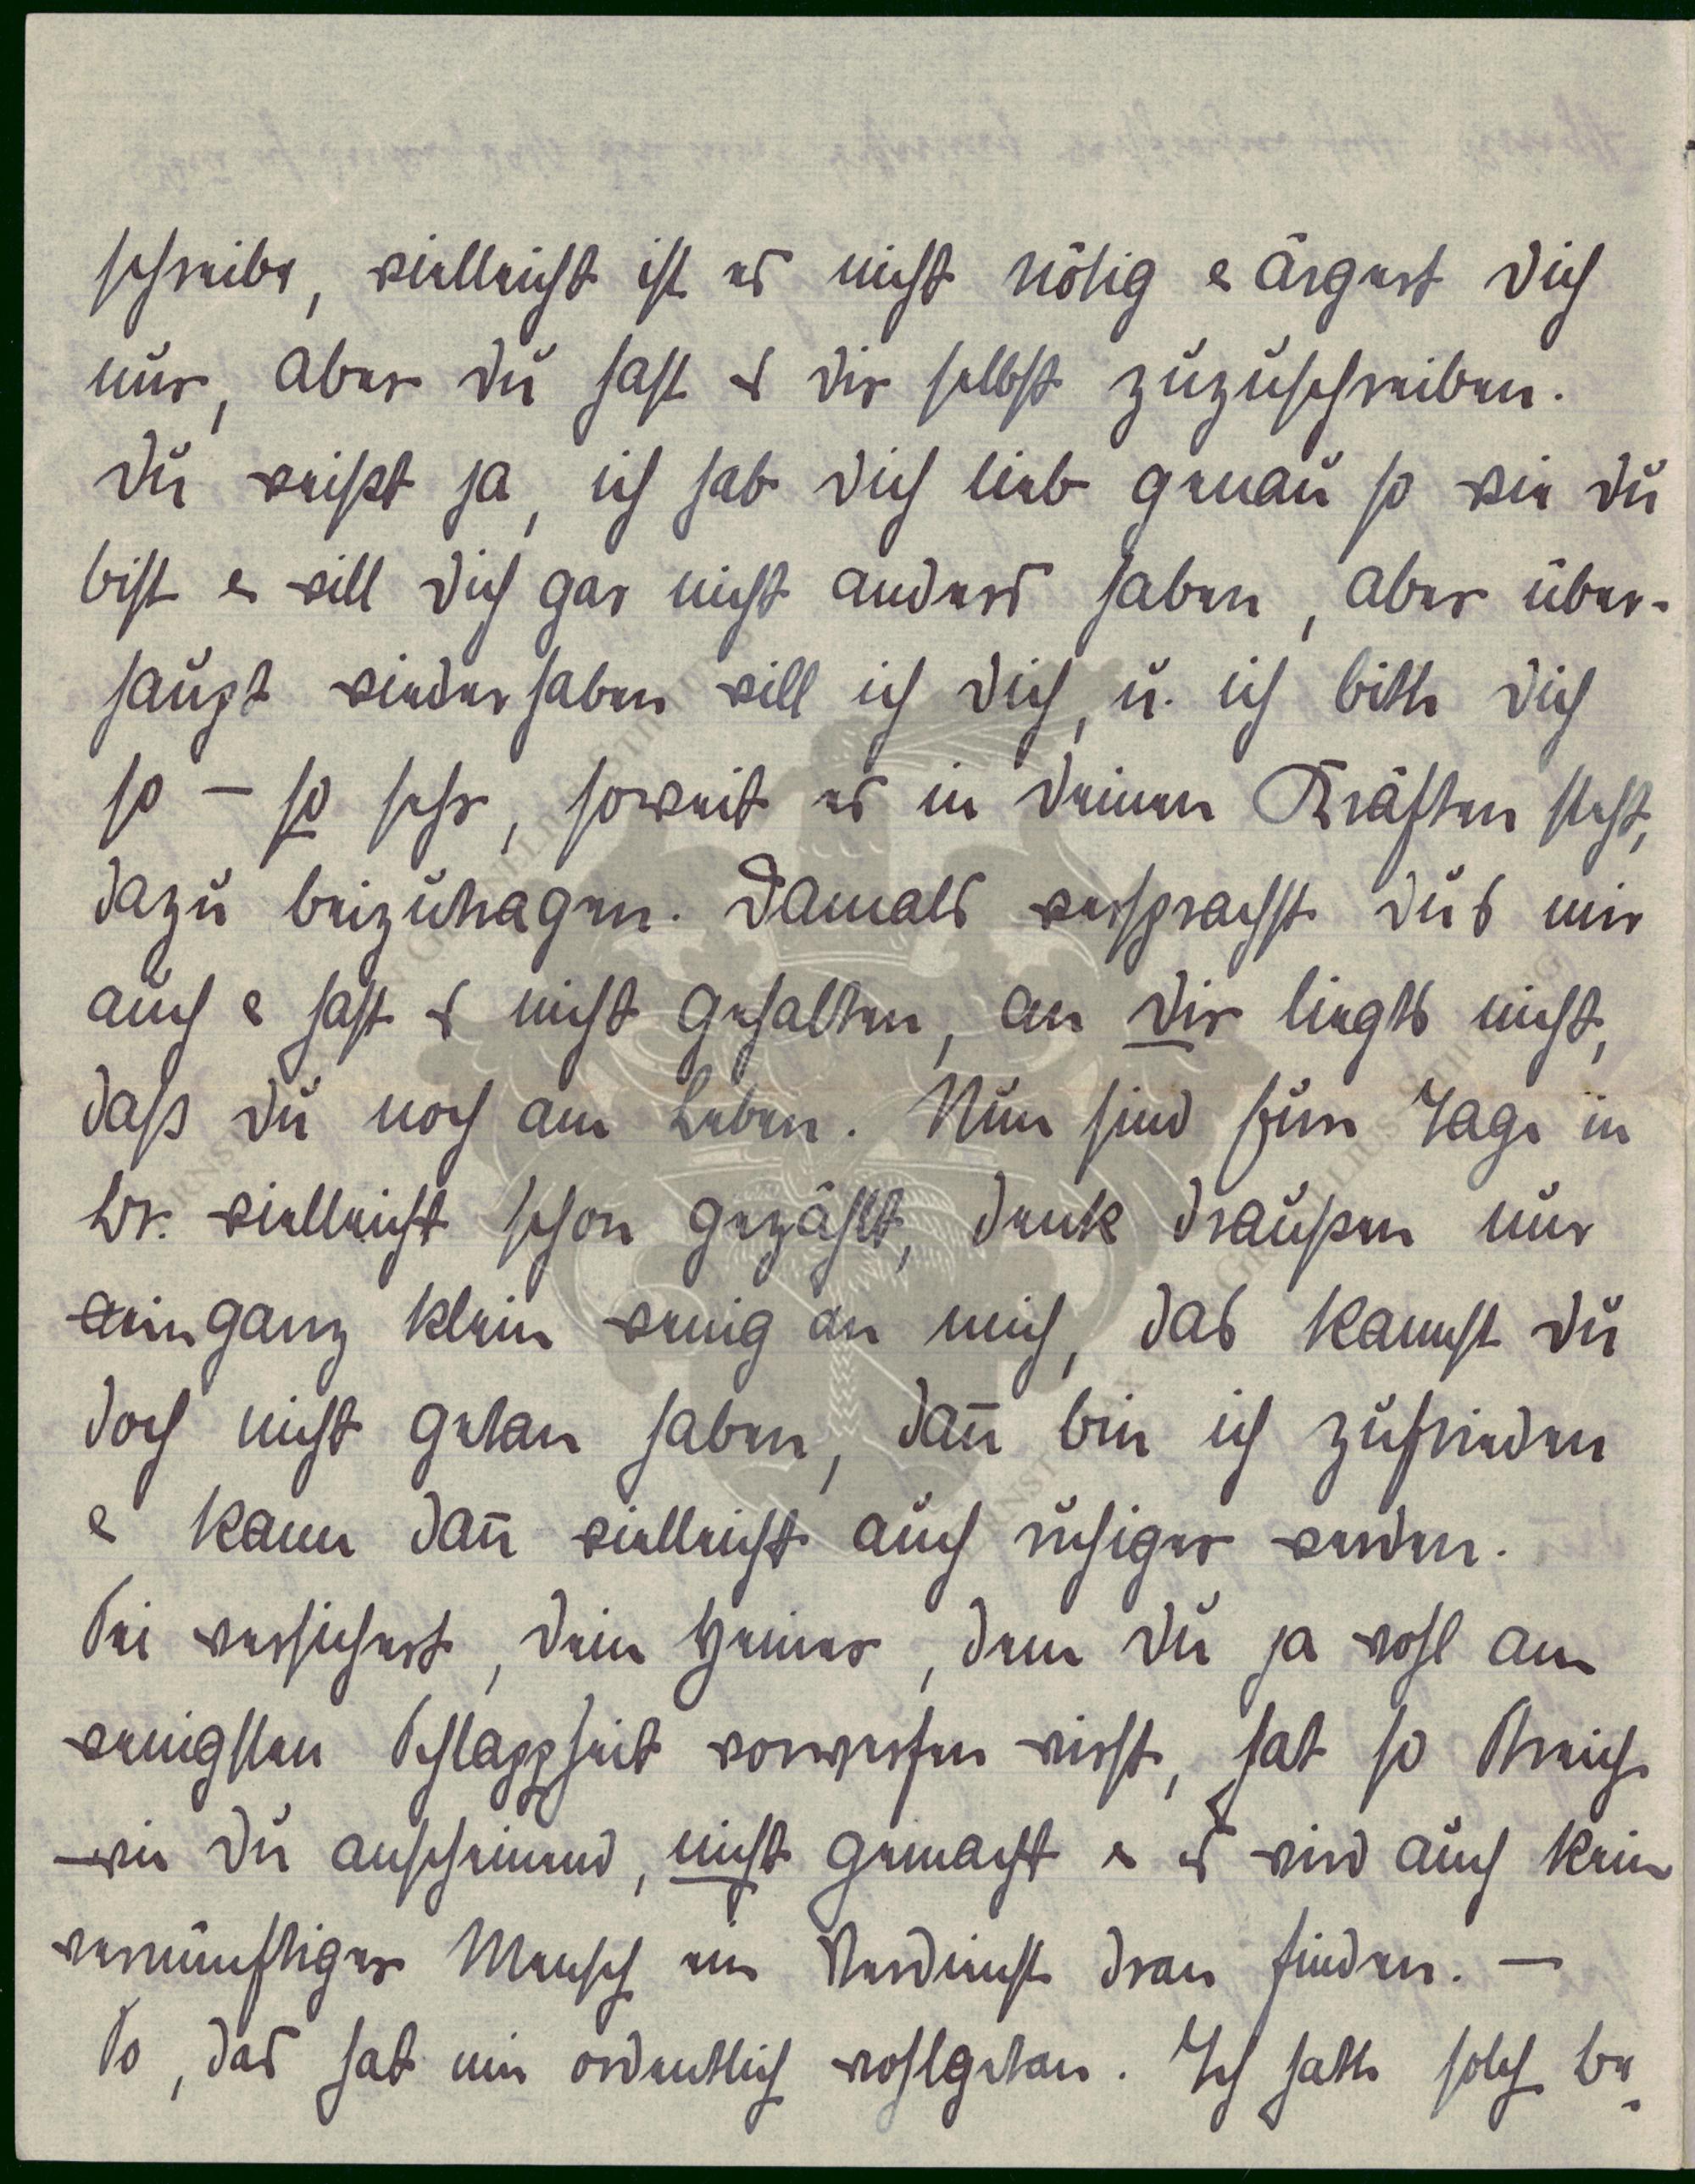 schreibe, vielleicht ist es nicht nötig & ärgert dich
nur, aber du hast es dir selbst zuzuschreiben.
Du weißt ja, ich hab dich lieb genau so wie du
bist & will dich gar nicht anders haben, aber über-
haupt wiederhaben will ich dich, u. ich bitte dich
so – so sehr, soweit es in deinen Kräften steht,
dazu beizutragen. Damals versprachst du's mir
auch & hast es nicht gehalten, an dir liegts nicht,
dass du noch am Leben. Nun sind Eure Tage in
Br. vielleicht schon gezählt, denk draußen nur
ein ganz klein wenig an mich, das kannst du
doch nicht getan haben, dan̄ bin ich zufrieden
& kann dan̄ vielleicht auch ruhiger werden.
Sei versichert, dein Heiner, dem du ja wohl am
wenigsten Schlappheit vorwerfen wirst, hat so Streiche
wie du anscheinend, nicht gemacht & es wird auch kein
vernünftiger Mensch ein Verdienst dran finden. –
So, das hat mir ordentlich wohlgetan. Ich hatte solch be-